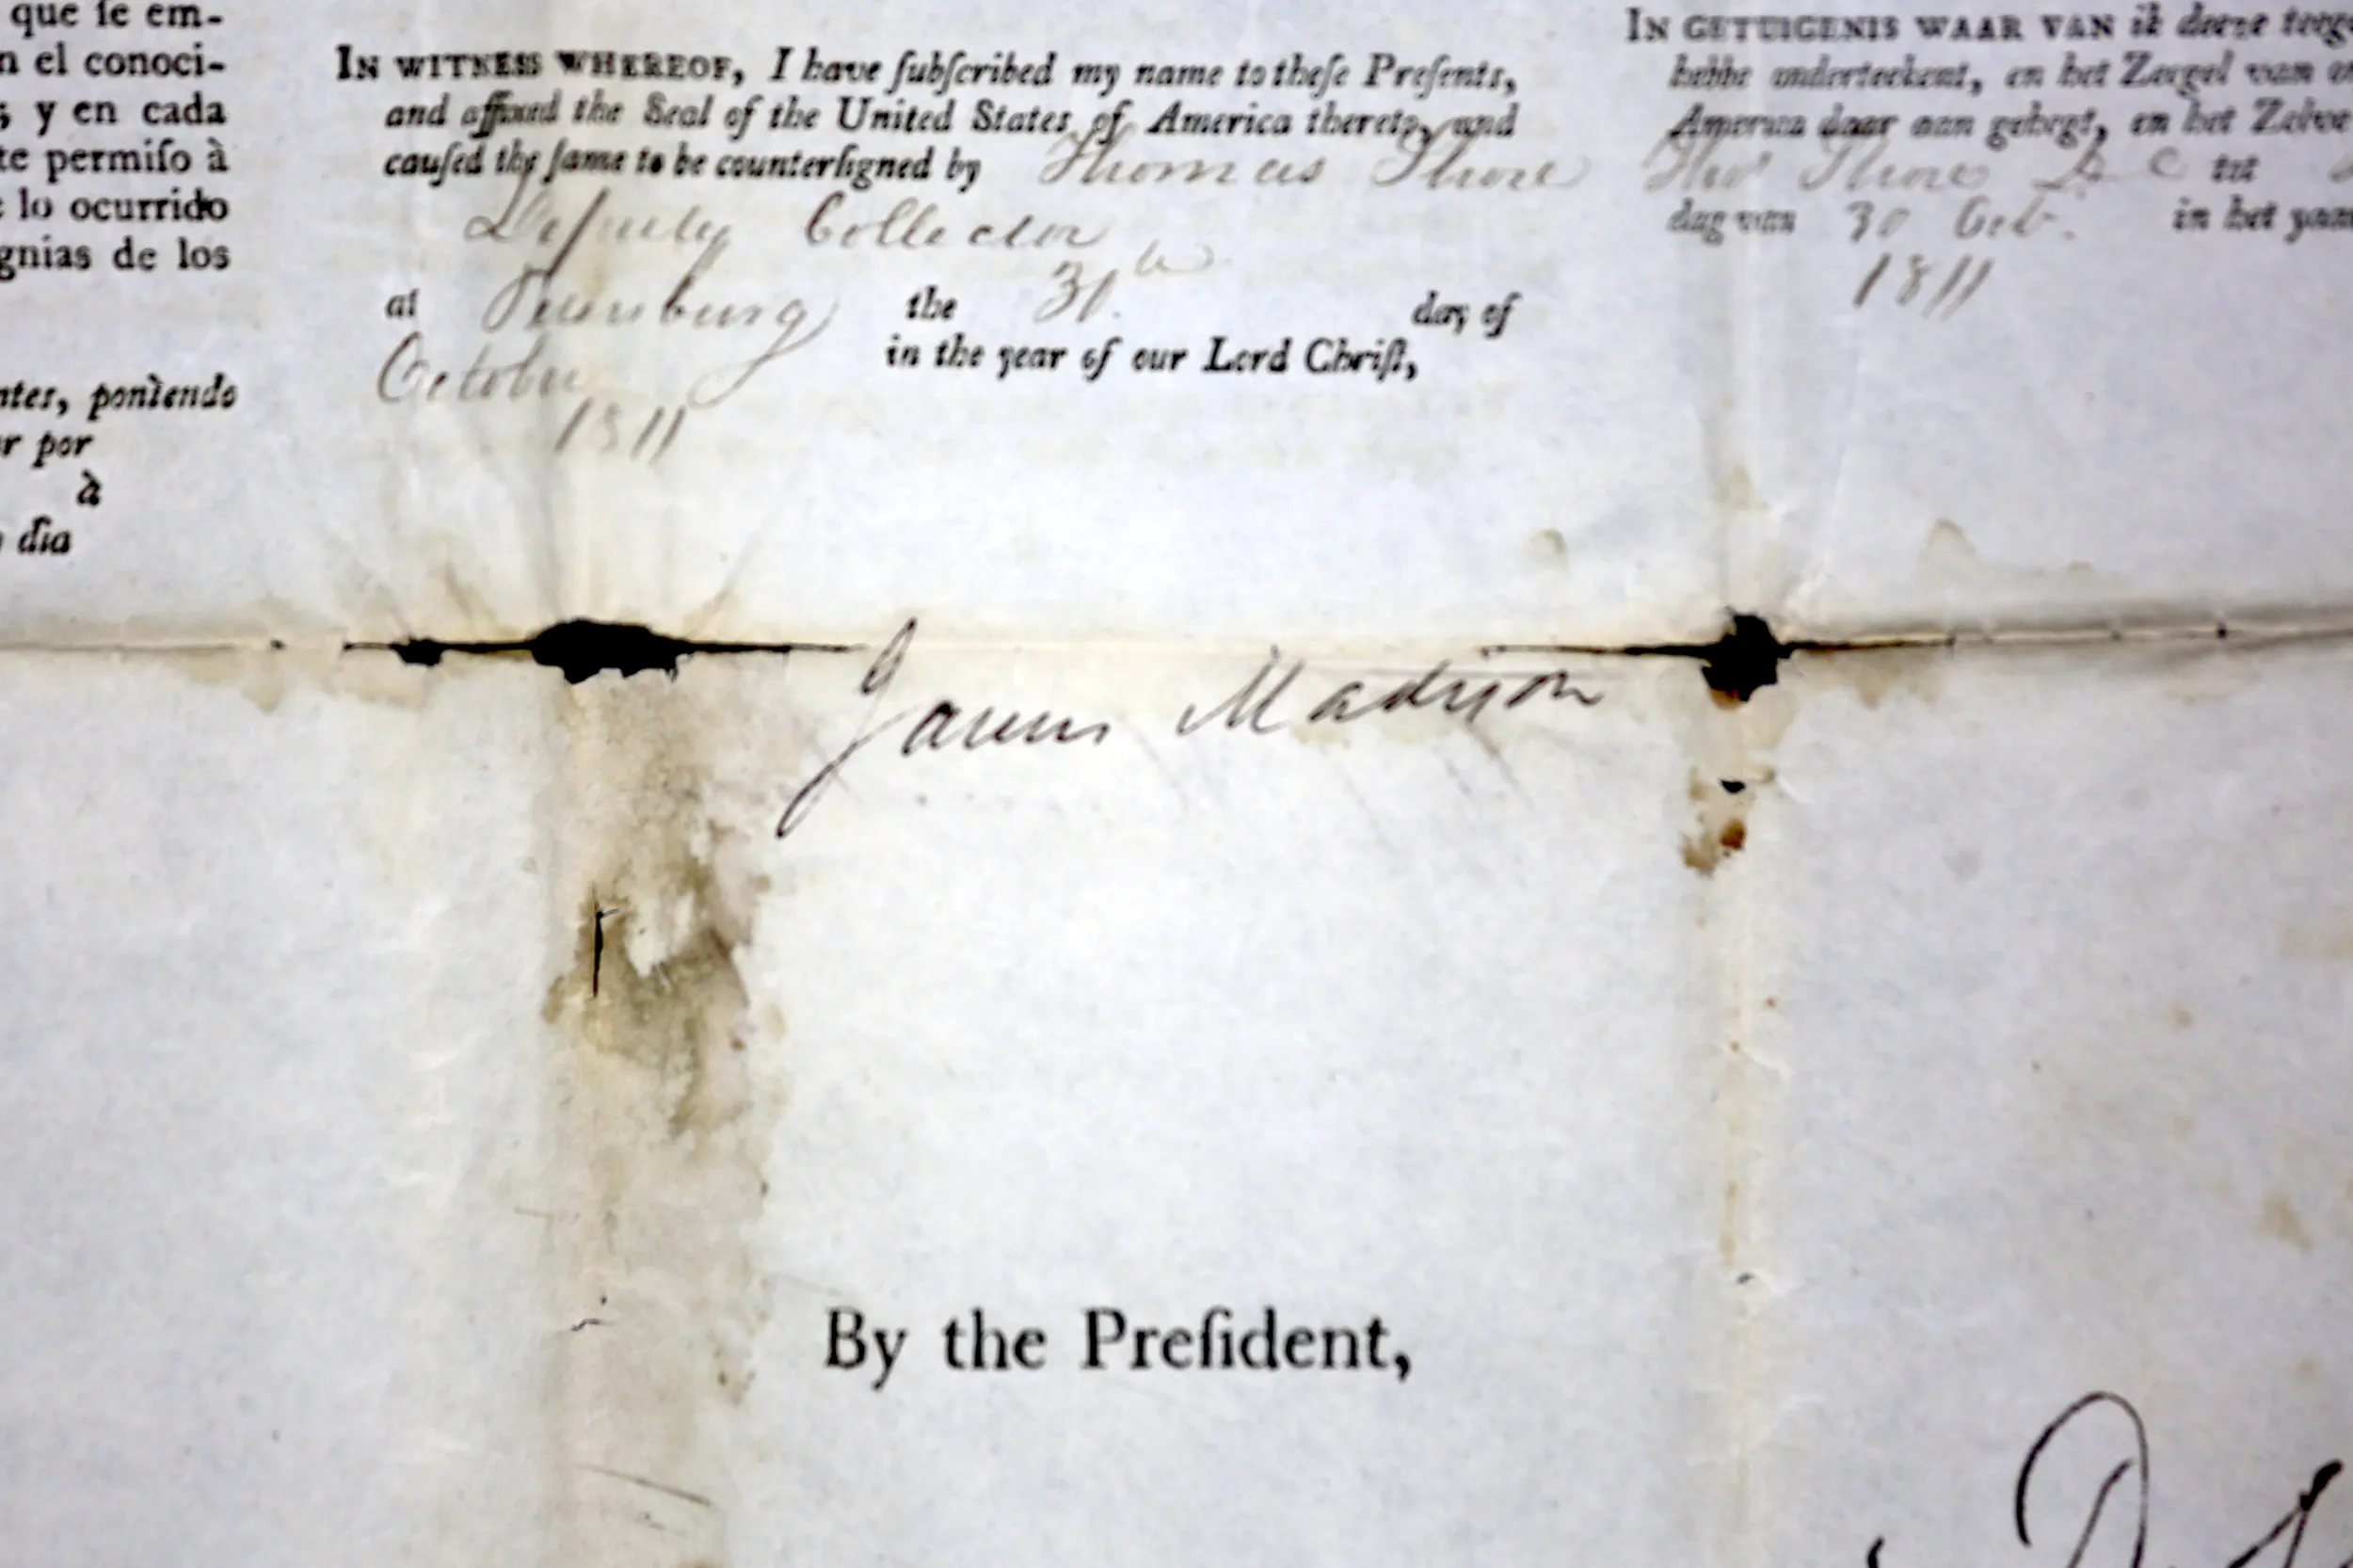 que ſe em-
n el conoci-
s y en cada
te permiſo à
lo ocurrido
gnias de los
ntes, poniendo
r por
à
dia
IN WITNESS WHEREOF, I have ſubſcribed my name to theſe Preſents,
and affixed the Seal of the United States of America thereto, and
cauſed the ſame to be counterſigned by Thomas Shore
Deputy Collector
at the 31. day of
October in the year of our Lord Chriſt,
1811
IN GETUIGENIS WAAR VAN ik deeze
hebbe onderteekent, en het Zeegel van
America daar aan gehegt, en het
Thoˢ Shore D C tot
dag van 30 Octr. in het
1811
James Madison
By the Preſident,